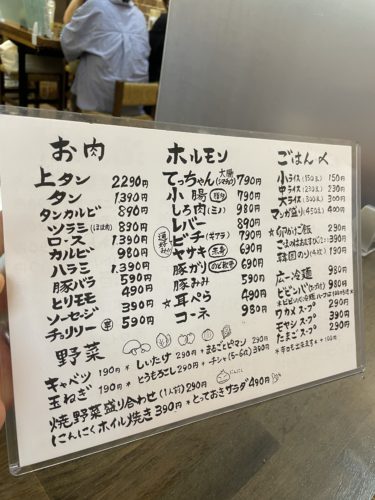 お肉
上タン 2290円
タン 1390円
タンカルビ 890円
ツラミ(ほほ肉) 830円
ロース 1390円
カルビ 980円
ハラミ 1,390円
豚バラ 590円
ヒリモモ 490円
ソーセージ 390円
チョリソー 辛 590円
ホルモン
てっちゃん 大腸(シマチョウ) 790円
小腸 790円
しろ肉(ミノ) 980円
レバー 890円
ビチ(ギアラ) 790円
ヤサキ 690円
豚ガリ のど軟骨 690円
豚みみ 590円
★耳ぺら 490円
コーネ 980円
ごはん〆
小ライス(150g) 150円
中ライス 230円
大ライス 290円
マンガ盛り 400円
韓国のり 190円
広一冷麺 980円
ワカメスープ 290円
モヤシスープ 290円
たまごスープ 290円
野菜
キャベツ 190円 * しいたけ 290円 * まるごとピーマン 290円
玉ねぎ 190円 * とうもろこし 290円 * チシャ(5~6枚) 390円
焼野菜盛り合わせ(1人前) 290円 にんにく
にんにくホイル焼き 390円 * とっておきサラダ 490円